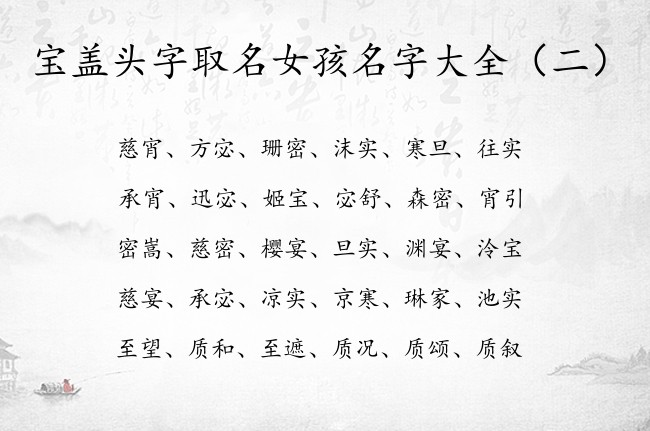 宝盖头字取名女孩名字大全（二）
慈宵、方宓、珊密、沫实、寒旦、往实
承宵、迅宓、姬宝、宓舒、森密、宵引
密嵩、慈密、樱宴、旦实、渊宴、泠宝
慈宴、承宓、凉实、京寒、琳家、池实
至望、质和、至遮、质况、质颂、质叙